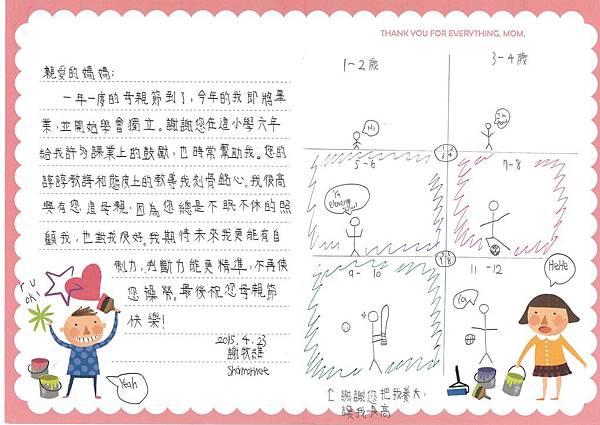 THANK YOU FOR EVERYTHING, MOM.
親愛的媽媽:
一年一度的母親節到了,今年的我即將畢
業,並開始學會獨立。謝謝您在這小學六年
給我許多課業上的鼓勵,也時常幫助我。您的
諄諄教誨和態度上的教導我刻骨銘心。我很高
興有您這母親,因為您總是不眠不休的照
顧我,也對我很好。我期待未來我更能有自
制力,判斷力能更精準,不再使
您操勞。最後祝您母親節
快樂!
2015.4.23
r u
oki
Yeah
1~2歲
Hi
3~4歲
5~6
7~8
9~10
11~12
Yoy
HeHe
謝謝您把我養大,
讓我長高